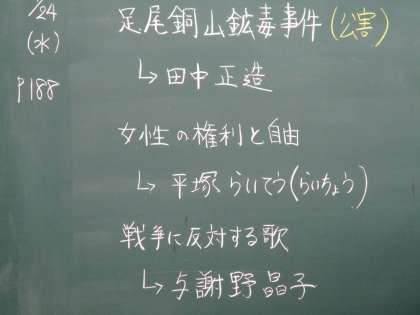 /24
(水)
P188
足尾銅山鉱毒事件(公害)
↳田中正造
女性の権利と自由
↳平塚らいてう(らいちょう)
戦争に反対する歌
↳与謝野晶子